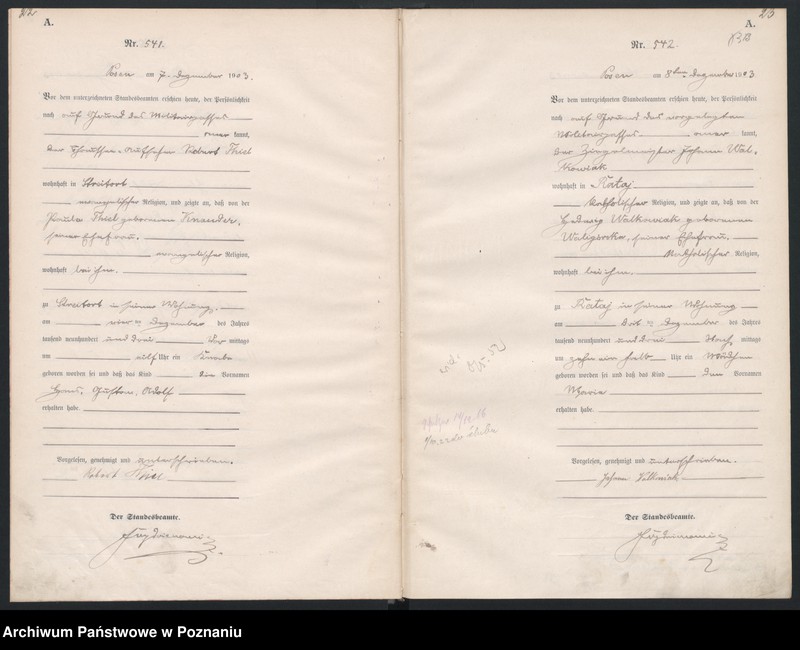 212
A.
Nr. 541.
Posen am 7. Dezember 1903.
Vor dem unterzeichneten Standesbeamten erschien heute, der Persönlichkeit
nach auf Grund des Militärpasses
kannt,
der Robert Thiel
wohnhaft in Streitort
evangelischer Religion, und zeigte an, daß von der
Paula Thiel geborenen
seiner Ehefrau,
evangelischer Religion,
wohnhaft bei ihm,
zu Streitort in seiner Wohnung,
am vier ten Dezember des Jahres
tausend neunhundert und drei Vor mittags
um elf Uhr ein Knabe
geboren worden sei und daß das Kind die Vornamen
Hans, Gustav, Adolf
erhalten habe.
Vorgelesen, genehmigt und unterschrieben.
Robert Thiel
Der Standesbeamte.
213
A.
Nr. 542.
Posen am 8ten Dezember 1903
Vor dem unterzeichneten Standesbeamten erschien heute, der Persönlichkeit
nach auf Grund des vorgelegten
Militärpasses kannt,
der Ziegelmeister Johann Wal-
kowiak
wohnhaft in Kataj
katholischer Religion, und zeigte an, daß von der
Hedwig Walkowiak geborenen
Waligorska, seiner Ehefrau,
katholischer Religion,
wohnhaft bei ihm,
zu Kataj in seiner Wohnung
am drit ten Dezember des Jahres
tausend neunhundert und drei Nach mittags
um zehn ein halb Uhr ein Mädchen
geboren worden sei und daß das Kind den Vornamen
Maria
erhalten habe.
Vorgelesen, genehmigt und unterschrieben.
Der Standesbeamte.
Archiwum Państwowe w Poznaniu